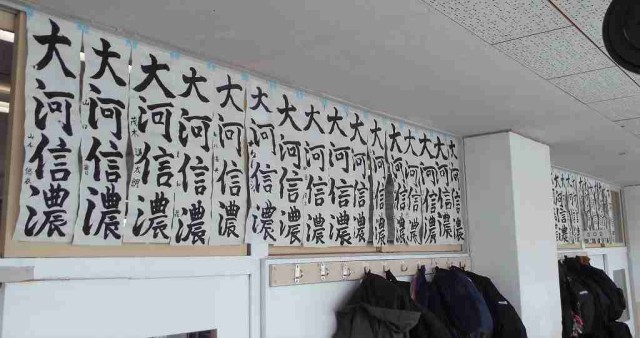 大河信濃
大河信濃
大河信濃
茂木
大河信濃
大河信濃
大河信濃
大河信濃
大河信濃
大河信濃
大河信濃
大河信濃
大河信濃
大河信濃
大河信濃
大河信濃
大河信濃
大河信濃